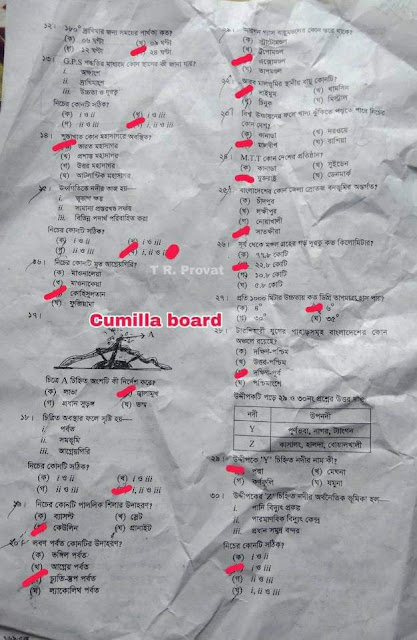 ১২। ১৮০° দ্রাঘিমার জন্য সময়ের পার্থক্য কত?
(ক) ০৬ ঘণ্টা (খ) ০৯ ঘণ্টা
(গ) ১২ ঘণ্টা (ঘ) ২৪ ঘণ্টা
১৩। G.P.S পদ্ধতির মাধ্যমে কোন স্থানের কী জানা যায়?
i. অক্ষাংশ
ii. দ্রাঘিমাংশ
iii. উচ্চতা ও দূরত্ব
নিচের কোনটি সঠিক?
(ক) i ও ii (খ) i ও iii
(গ) ii ও iii i, ii ও iii
১৪। কোন মহাসাগরে অবস্থিত?
ভারত মহাসাগর
(খ) প্রশান্ত মহাসাগর
(গ) উত্তর মহাসাগর
(ঘ) আটলান্টিক মহাসাগর
১৫। ঊর্ধ্বগতিতে নদীর কাজ হয়—
i. ভূত্বক ক্ষয়
ii. সামান্য প্রস্তরখণ্ড সঞ্চয়
iii. বিভিন্ন পদার্থ পরিবাহিত করা
নিচের কোনটি সঠিক?
(ক) i ও ii i ও iii
(গ) ii ও iii i, ii ও
১৬। নিচের কোনটি মৃত আগ্নেয়গিরি?
(ক) মাওনালেয়া
(খ) মাওনাকেয়া
কোহিসুলতান
(ঘ) ফুজিয়ামা
T R. Provat
Cumilla board
১৭।
A
চিত্রে A চিহ্নিত অংশটি কী নির্দেশ করে?
(ক) লাভা জ্বালামুখ
(গ) প্রধান সুড়ঙ্গ (ঘ) ভস্ম
১৮। চিত্রিত অবস্থার ফলে সৃষ্টি হয়—
i. পর্বত
ii. সমভূমি
iii. আগ্নেয়গিরি
নিচের কোনটি সঠিক?
(ক) i ও ii (খ) i ও iii
(গ) ii ও iii i, ii ও iii
১৯। নিচের কোনটি পাললিক শিলার উদাহরণ?
(ক) ব্যাসল্ট (খ) স্লেট
কেওলিন (ঘ) গ্রানাইট
২০। লবণ পর্বত কোনটির উদাহরণ?
(ক) ভঙ্গিল পর্বত
(খ) আগ্নেয় পর্বত
চ্যুতি-স্তূপ পর্বত
(ঘ) ল্যাকোলিথ পর্বত
বায়ুমণ্ডলের কোন স্তরে থাকে?
(ক) স্ট্রাটোমণ্ডল
(খ) ট্রপোমণ্ডল
(ঘ) তাপমণ্ডল
স্থানীয় বায়ু কোনটি?
সাইমুম (খ) খামসিন
(গ) চিনুক (ঘ) মিস্ট্রাল
২৩। বিশ্ব উষ্ণায়নের ফলে খাদ্য ঝুঁকিতে পড়তে পারে নিচের কোন দেশ?
(ক) কানাডা (খ) নরওয়ে
মালদ্বীপ (ঘ) রাশিয়া
২৪। M.T.T কোন দেশের প্রতিষ্ঠান?
(ক) কানাডা (খ) সুইডেন
যুক্তরাষ্ট্র (ঘ) ডেনমার্ক
২৫। বাংলাদেশের কোন জেলা স্রোতজ বনভূমির অন্তর্গত?
(ক) চাঁদপুর
(খ) লক্ষীপুর
(গ) নোয়াখালী
সাতক্ষীরা
২৬। সূর্য থেকে মঙ্গল গ্রহের গড় দূরত্ব কত কিলোমিটার?
(ক) ৭৭.৮ কোটি
২২.৮ কোটি
(গ) ১০.৮ কোটি
(ঘ) ৫.৮ কোটি
২৭। প্রতি ১০০০ মিটার উচ্চতায় কত ডিগ্রী তাপমাত্রা হ্রাস পায়?
(ক) ৪° ৬°
(গ) ২০° (ঘ) ৩৫°
২৮। টারশিয়ারী যুগের পাহাড়সমূহ বাংলাদেশের কোন অঞ্চলে রয়েছে?
(ক) দক্ষিণ-পশ্চিম
(খ) উত্তর-পশ্চিম
দক্ষিণ-পূর্ব
(ঘ) পশ্চিমাংশে
উদ্দীপকটি পড়ে ২৯ ও ৩০নং প্রশ্নের উত্তর দাও:
নদী উপনদী
Y পুনর্ভবা, নাগর, ট্যাংগন
Z কাসালং, হালদা, বোয়ালখালী
২৯। উদ্দীপকে 'Y' চিহ্নিত নদীর নাম কী?
পদ্মা (খ) মেঘনা
(গ) কর্ণফুলি (ঘ) যমুনা
৩০। উদ্দীপকের 'Z' চিহ্নিত নদীর অর্থনৈতিক ভূমিকা হল—
i. পানি বিদ্যুৎ প্রকল্প
ii. পারমাণবিক বিদ্যুৎ কেন্দ্র
iii. প্রধান সমুদ্র বন্দর
নিচের কোনটি সঠিক?
(ক) i ও ii
i ও iii
(গ) ii ও iii
(ঘ) i, ii ও iii